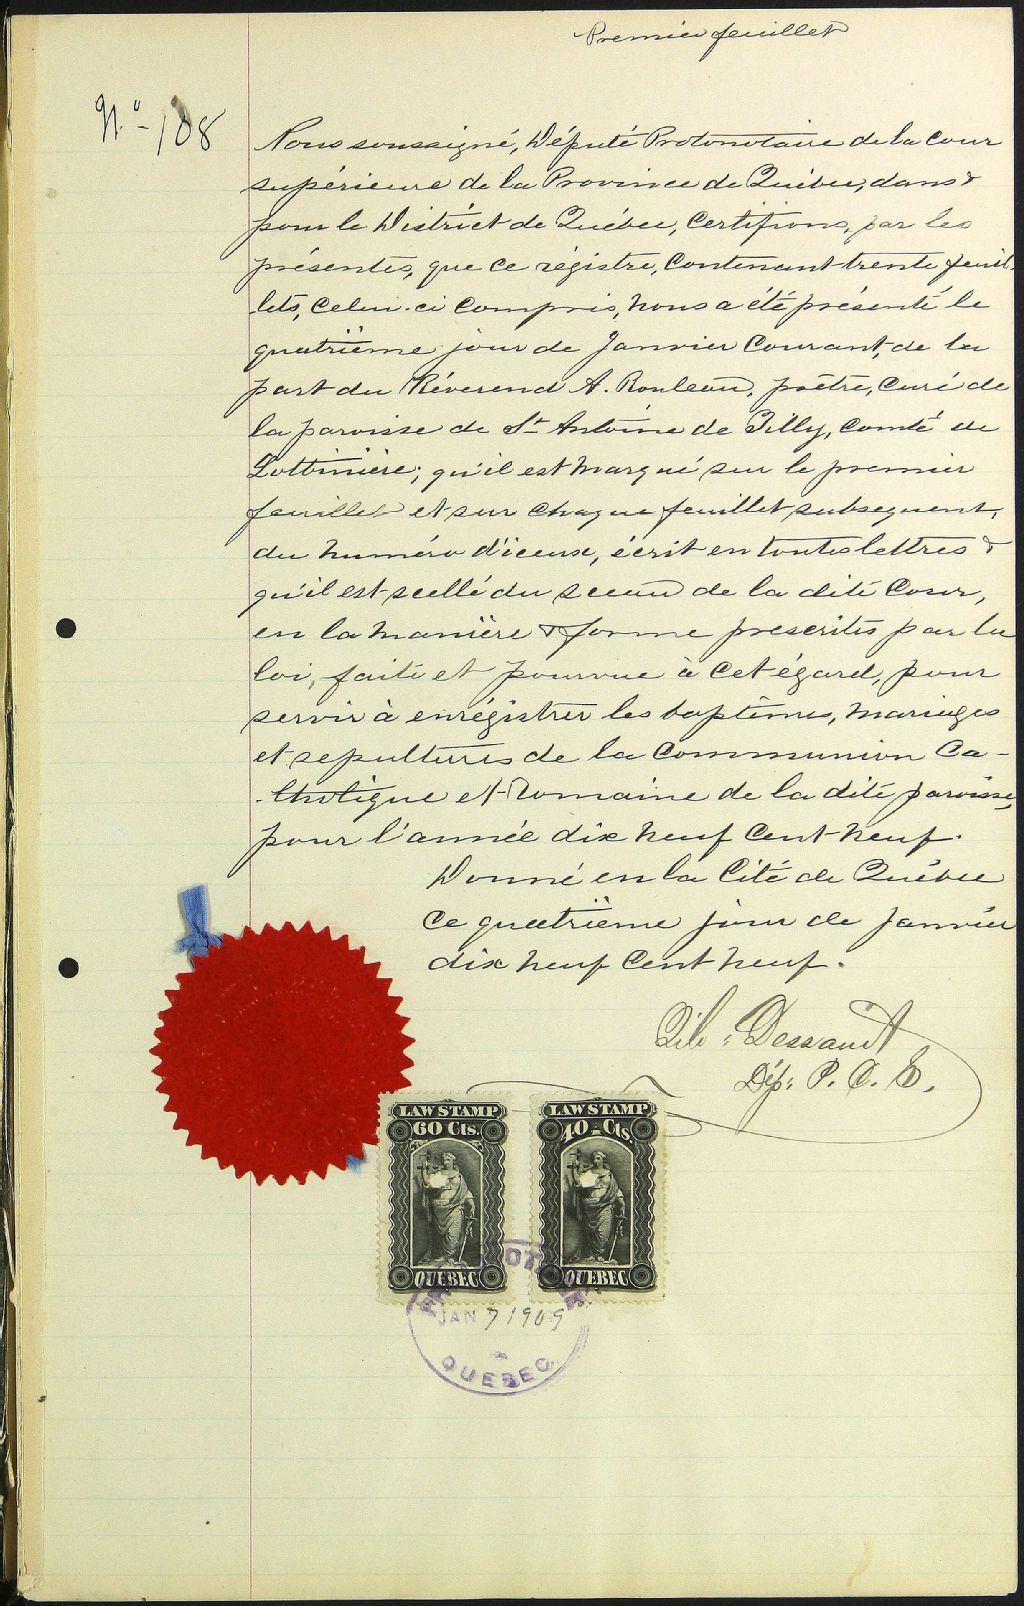 Premier feuillet
N.o - 108
Nous soussigné, Député Protonotaire de la Cour
supérieure de la Province de Québec, dans &
pour le District de Québec, Certifions, par les
présentes, que ce régistre, Contenant trente feuil-
lets, Celui-ci Compris, nous a été présenté le
quatrième jour de Janvier Courant, de la
part du Réverend A. Rouleau, prêtre, Curé de
la paroisse de St Antoine de Tilly, Comté de
Lotbinière; qu'il est marqué sur le premier
feuillet et sur chaque feuillet subsequent,
du numéro d'iceux, écrit en toutes lettres &
qu'il est scellé du sceau de la dite Cour,
en la manière & forme prescrites par la
loi, faite et pourvue à cet égard, pour
servir à enrégistrer les baptêmes, mariages
et sepultures de la Communion Ca-
-tholique et Romaine de la dite paroisse,
pour l'année dix neuf Cent neuf.
Donné en la Cité de Québec
Ce quatrième jour de Janvier
dix neuf Cent neuf.
Dessault
Dép: P. C. S.
LAW STAMP
60 Cts.
QUEBEC
LAW STAMP
40-Cts.
QUEBEC
JAN 7 1909
QUEBEC